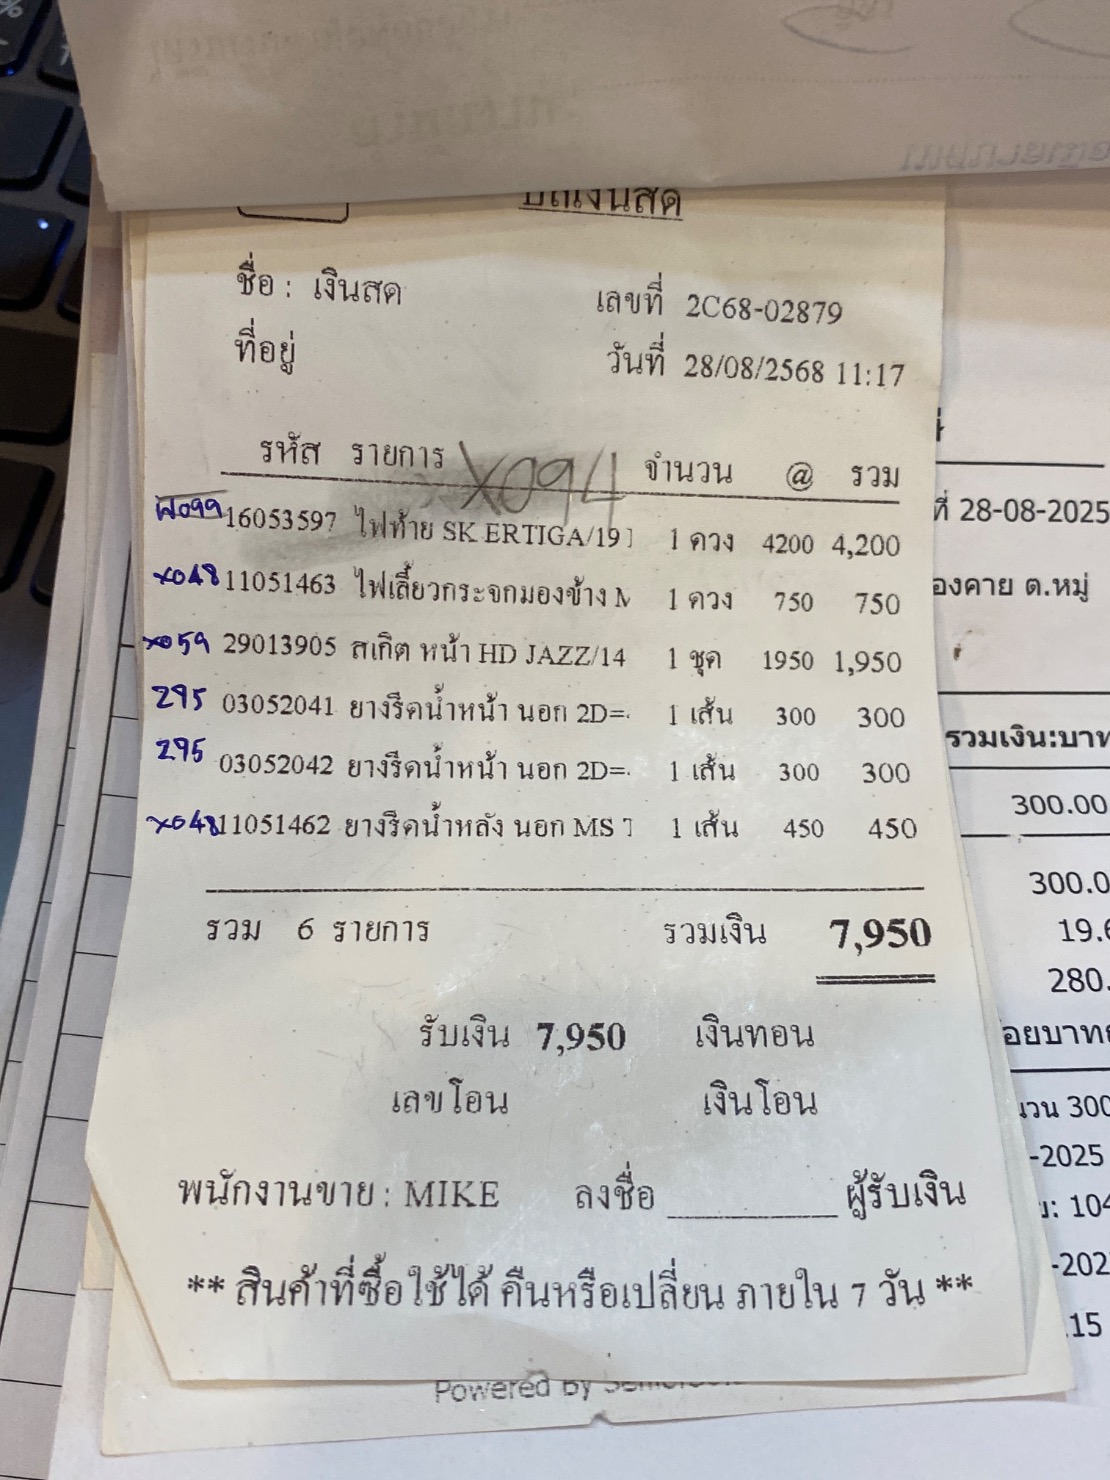 บิลเงินสด
ชื่อ : เงินสด
เลขที่ 2C68-02879
ที่อยู่
วันที่ 28/08/2568 11:17
รหัส รายการ X094 จำนวน @ รวม
16053597 ไฟท้าย SK ERTIGA/19 1 ดวง 4200 4,200
X048 11051463 ไฟเลี้ยวกระจกมองข้าง M 1 ดวง 750 750
X059 29013905 สเกิต หน้า HD JAZZ/14 1 ชุด 1950 1,950
295 03052041 ยางรีดน้ำหน้า นอก 2D= 1 เส้น 300 300
295 03052042 ยางรีดน้ำหน้า นอก 2D= 1 เส้น 300 300
X048 11051462 ยางรีดน้ำหลัง นอก MS 1 เส้น 450 450
รวม 6 รายการ รวมเงิน 7,950
รับเงิน 7,950 เงินทอน
เลขโอน เงินโอน
พนักงานขาย : MIKE ลงชื่อ ผู้รับเงิน
** สินค้าที่ซื้อใช้ได้ คืนหรือเปลี่ยน ภายใน 7 วัน **
Powered By
ที่ 28-08-2025
องคาย ต.หมู่
รวมเงิน:บาท
300.00
300.0
19.6
280.
้อยบาทถ
นวน 300
-2025
: 104
-202
.15